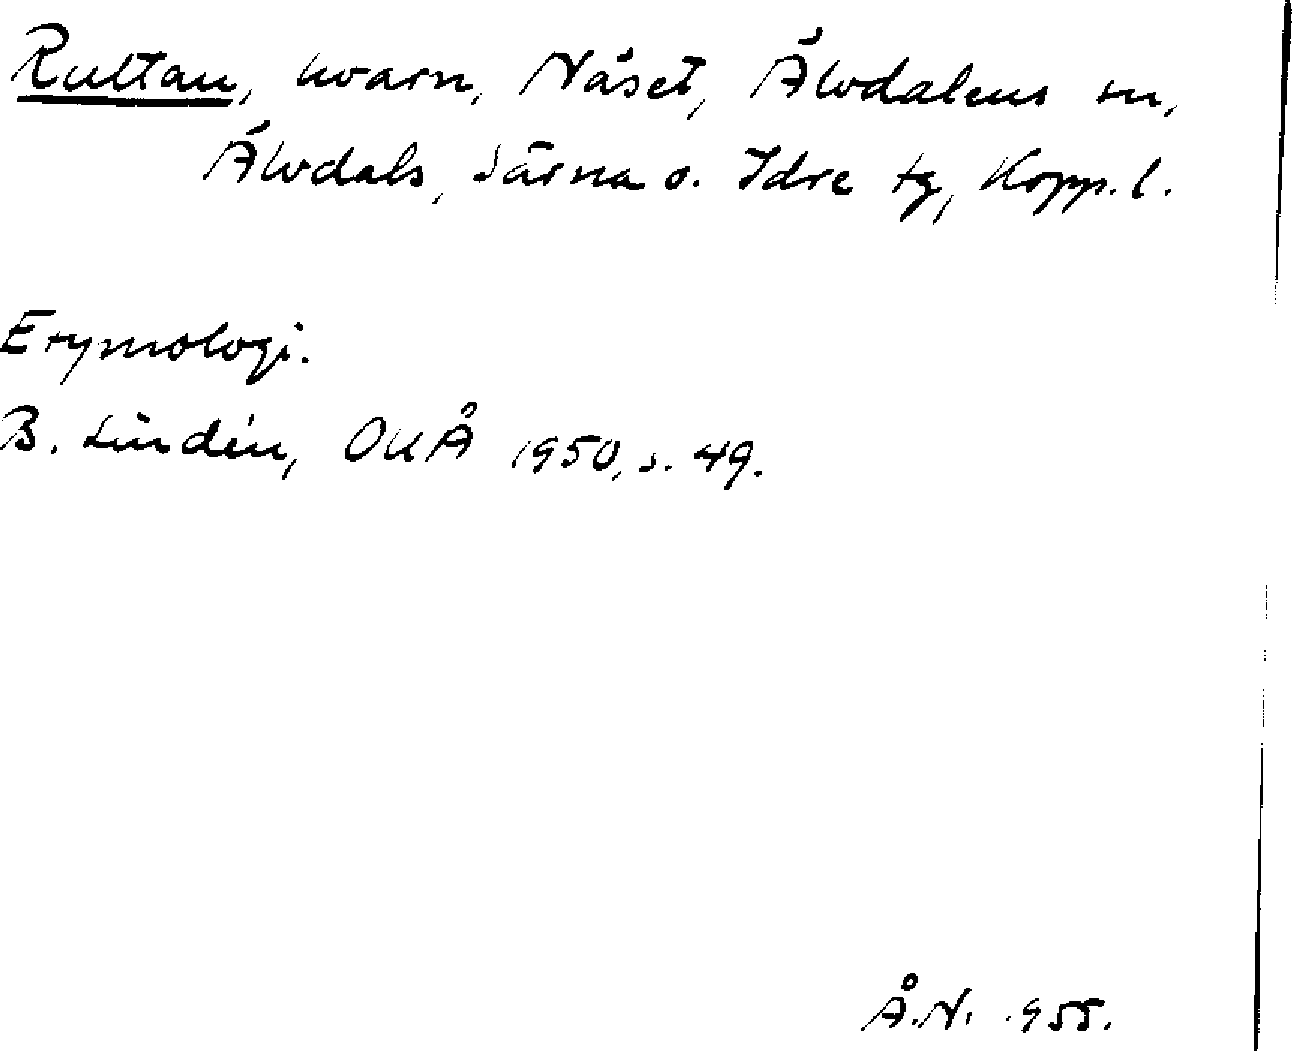 Rultan, kvarn, Näset, Älvdalens sn,
Älvdals, Särna o. Idre tg, Kopp. l.
Etymologi.
B. Lindén, OUÅ 1950, s. 49.
Å.N. 1955.